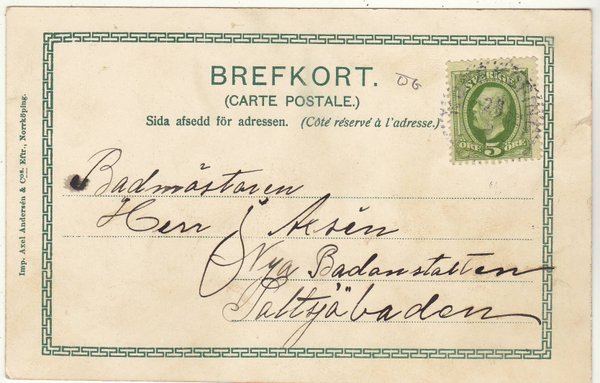 BREFKORT.
(CARTE POSTALE.)
Sida afsedd för adressen. (Côté réservé à l'adresse.)
SVERIGE
ÖRE 5 ÖRE
Badmästaren
Herr J Axsén
Nya Badanstalten
Saltsjöbaden
Imp. Axel Andersén & Co:s Eftr., Norrköping.